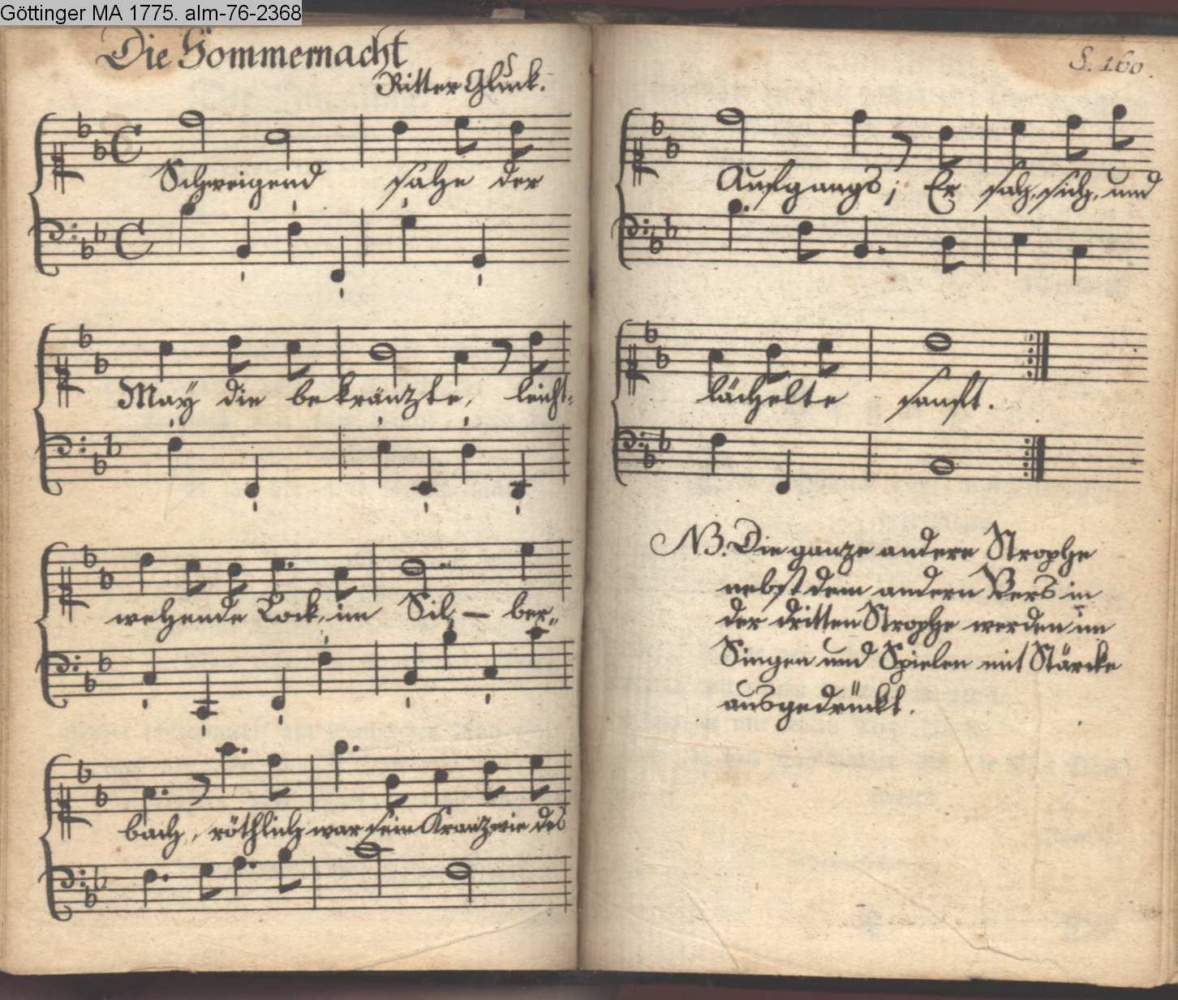 Göttinger MA 1775. alm-76-2368
Die Sommernacht
Ritter Gluck.
Schweigend sahe der
May die bekränzte, leicht-
wehende Lock, im Sil - ber-
bach, röthlich war sein Kranz, wie des
S. 160.
Aufgangs; Er sah, sich, und
lächelte sanft.
NB. Die ganze andere Strophe
nebst dem andern Vers in
der dritten Strophe werden im
Singen und Spielen mit Stärcke
ausgedrückt.